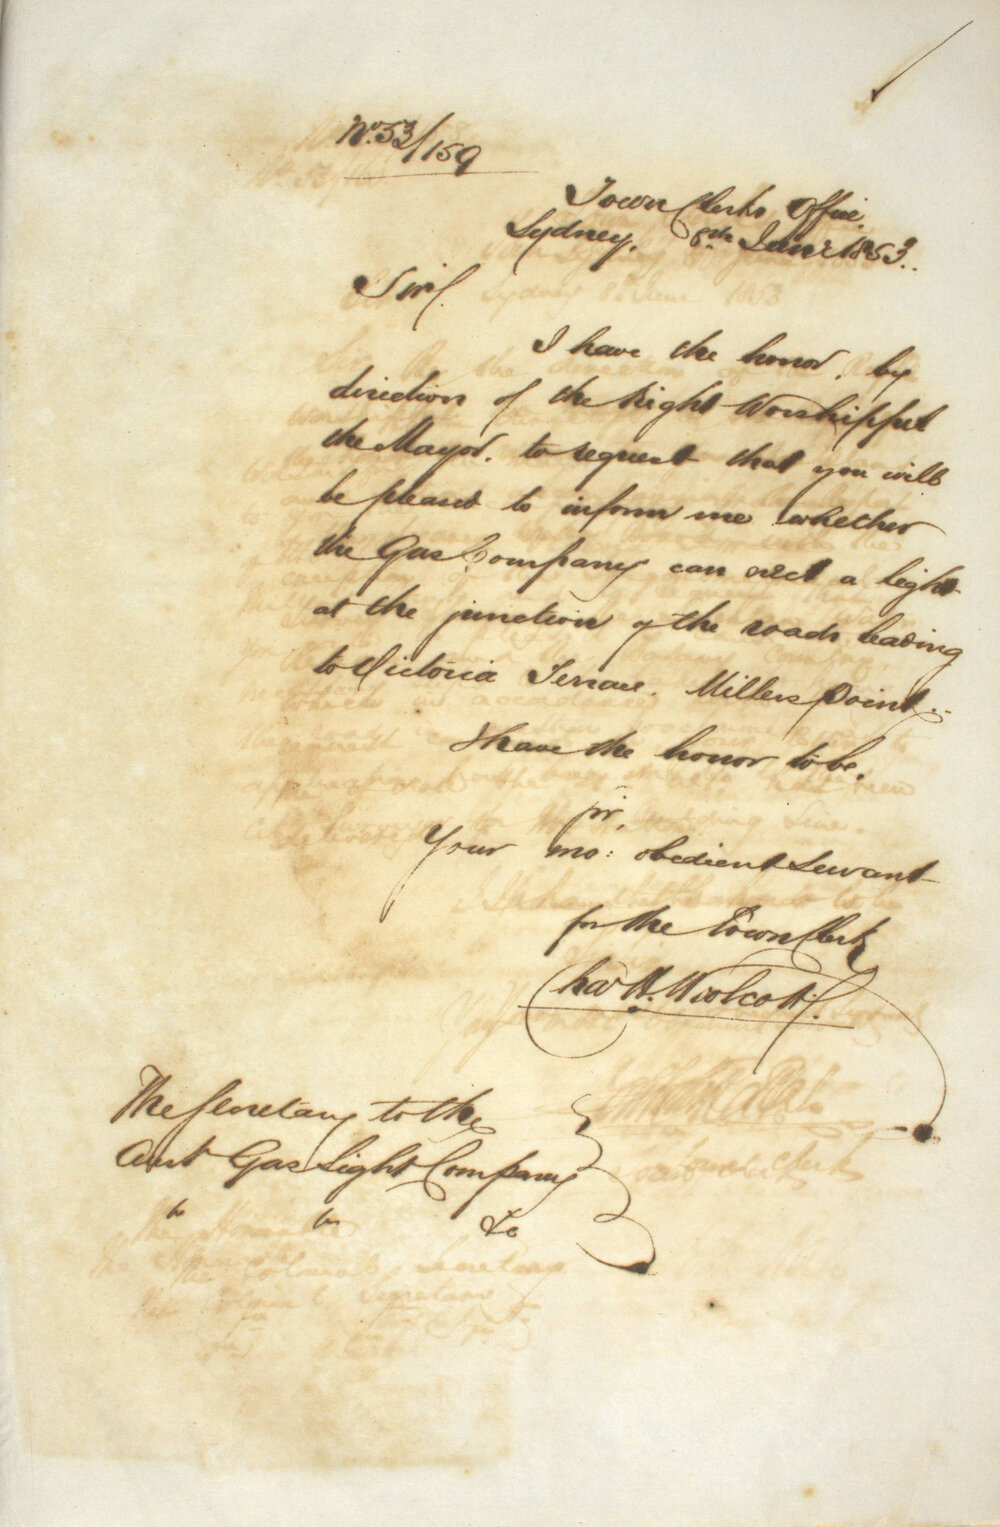 No. 53/159
Town Clerks Office.
Sydney. 8th June 1853.
Sir,
I have the honor, by
direction of the Right Worshipful
the Mayor, to request that you will
be pleased to inform me whether
the Gas Company can erect a light
at the junction of the roads leading
to Victoria Terrace. Millers Point.
I have the honor to be,
Sir,
Your mo: obedient Servant
for the Town Clerk
Chas H. Woolcott.
The Secretary to the
Aust Gas Light Company
" " &c